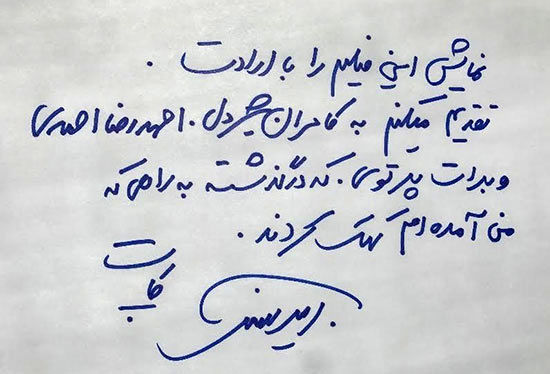 نمایش این فیلم را با ارادت .
تقدیم میکنم به کامران شیردل . احمدرضا احمدی
و برات پرتوی . که در گذشته به راهی که
من آمده ام کمک کردند .